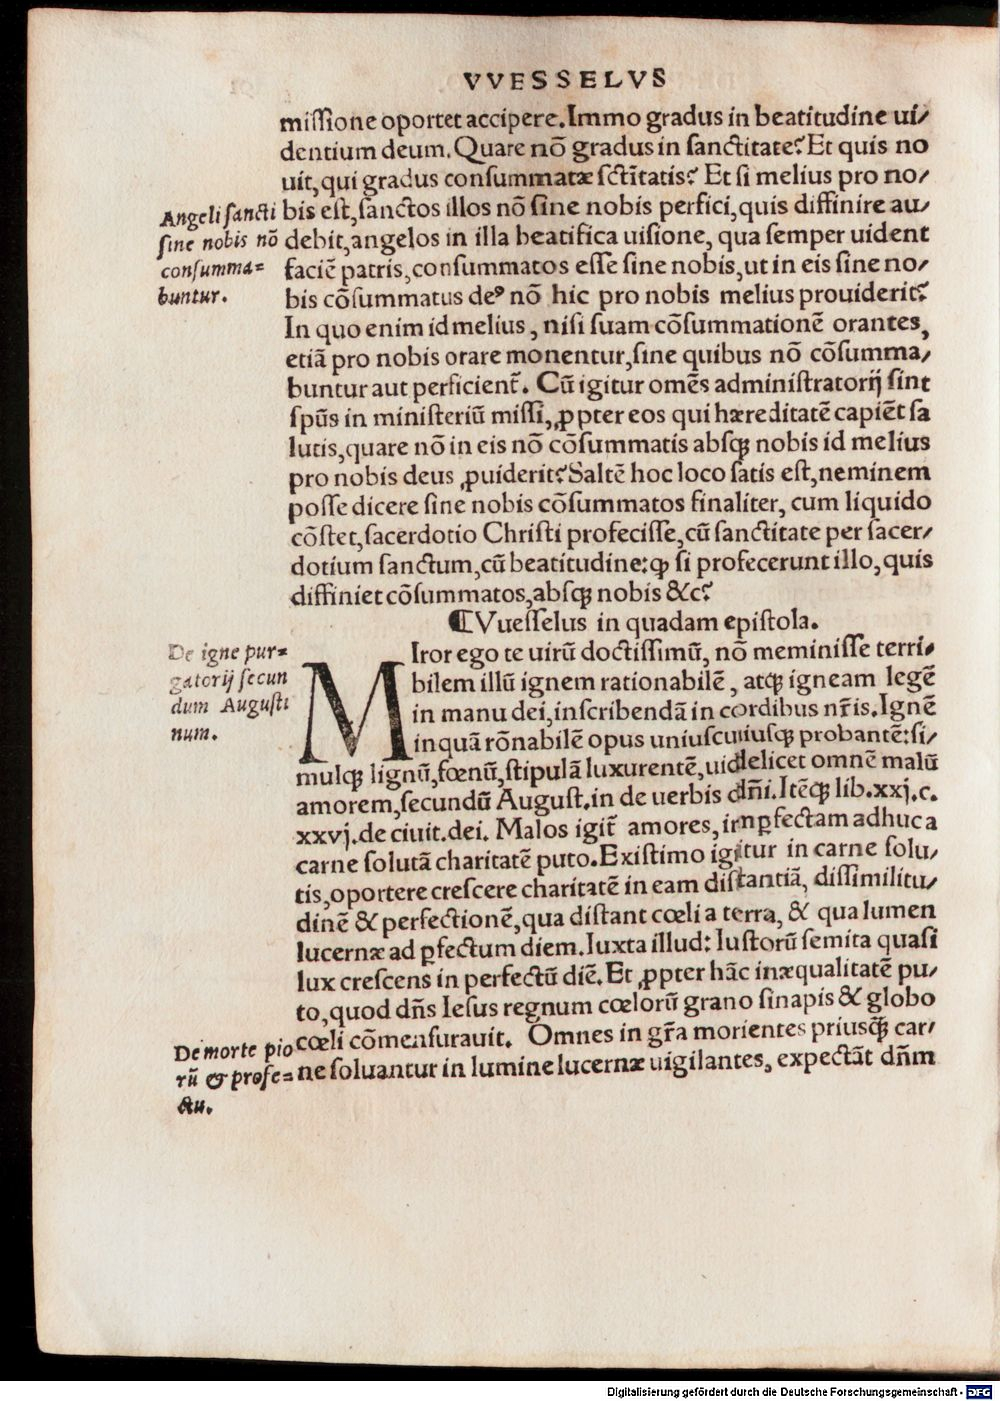 VVESSELVS
miſſione oportet accipere. Immo gradus in beatitudine ui/
dentium deum. Quare nõ gradus in ſanctitate? Et quis no
uit, qui gradus conſummatæ ſctĩtatis? Et ſi melius pro no/
bis eſt, ſanctos illos nõ ſine nobis perfici, quis diffinire au/
debit, angelos in illa beatifica uiſione, qua ſemper uident
faciẽ patris, conſummatos eſſe ſine nobis, ut in eis ſine no/
bis cõſummatus deꝰ nõ hic pro nobis melius prouiderit?
In quo enim id melius, niſi ſuam cõſummationẽ orantes,
etiã pro nobis orare monentur, ſine quibus nõ cõſumma/
buntur aut perficient̃. Cũ igitur omẽs adminiſtratorij ſint
ſpũs in miniſteriũ miſſi, ꝓpter eos qui hæreditatẽ capiẽt ſa
lutis, quare nõ in eis nõ cõſummatis abſqꝫ nobis id melius
pro nobis deus ꝓuiderit? Saltẽ hoc loco ſatis eſt, neminem
poſſe dicere ſine nobis cõſummatos finaliter, cum liquido
cõſtet, ſacerdotio Chriſti profeciſſe, cũ ſanctitate per ſacer/
dotium ſanctum, cũ beatitudine: ꝙ ſi profecerunt illo, quis
diffiniet cõſummatos, abſqꝫ nobis &c?
Angeli ſancti
ſine nobis nõ
conſumma=
buntur.
¶ Vueſſelus in quadam epiſtola.
MIror ego te uirũ doctiſſimũ, nõ meminiſſe terri/
bilem illũ ignem rationabilẽ, atqꝫ igneam legẽ
in manu dei, inſcribendã in cordibus nr̃is. Ignẽ
inquã rõnabilẽ opus uniuſcuiuſqꝫ probantẽ: ſi/
mulqꝫ lignũ, fœnũ, ſtipulã luxurentẽ, uidelicet omnẽ malũ
amorem, ſecundũ Auguſt. in de uerbis dñi. Itẽqꝫ lib. xxj. c.
xxvj. de ciuit. dei. Malos igit̃ amores, imꝑfectam adhuc a
carne ſolutã charitatẽ puto. Exiſtimo igitur in carne ſolu/
tis, oportere creſcere charitatẽ in eam diſtantiã, diſſimilitu/
dinẽ & perfectionẽ, qua diſtant cœli a terra, & qua lumen
lucernæ ad ꝑfectum diem. Iuxta illud: Iuſtorũ ſemita quaſi
lux creſcens in perfectũ diẽ. Et ꝓpter hãc inæqualitatẽ pu/
to, quod dñs Ieſus regnum cœlorũ grano ſinapis & globo
cœli cõmenſurauit. Omnes in gr̃a morientes priusꝙ̃ car/
ne ſoluantur in lumine lucernæ uigilantes, expectãt dñm
De igne pur=
gatorij ſecun
dum Auguſti
num.
De morte pio
rũ & profe=
ctu.
Digitalisierung gefördert durch die Deutsche Forschungsgemeinschaft - DFG